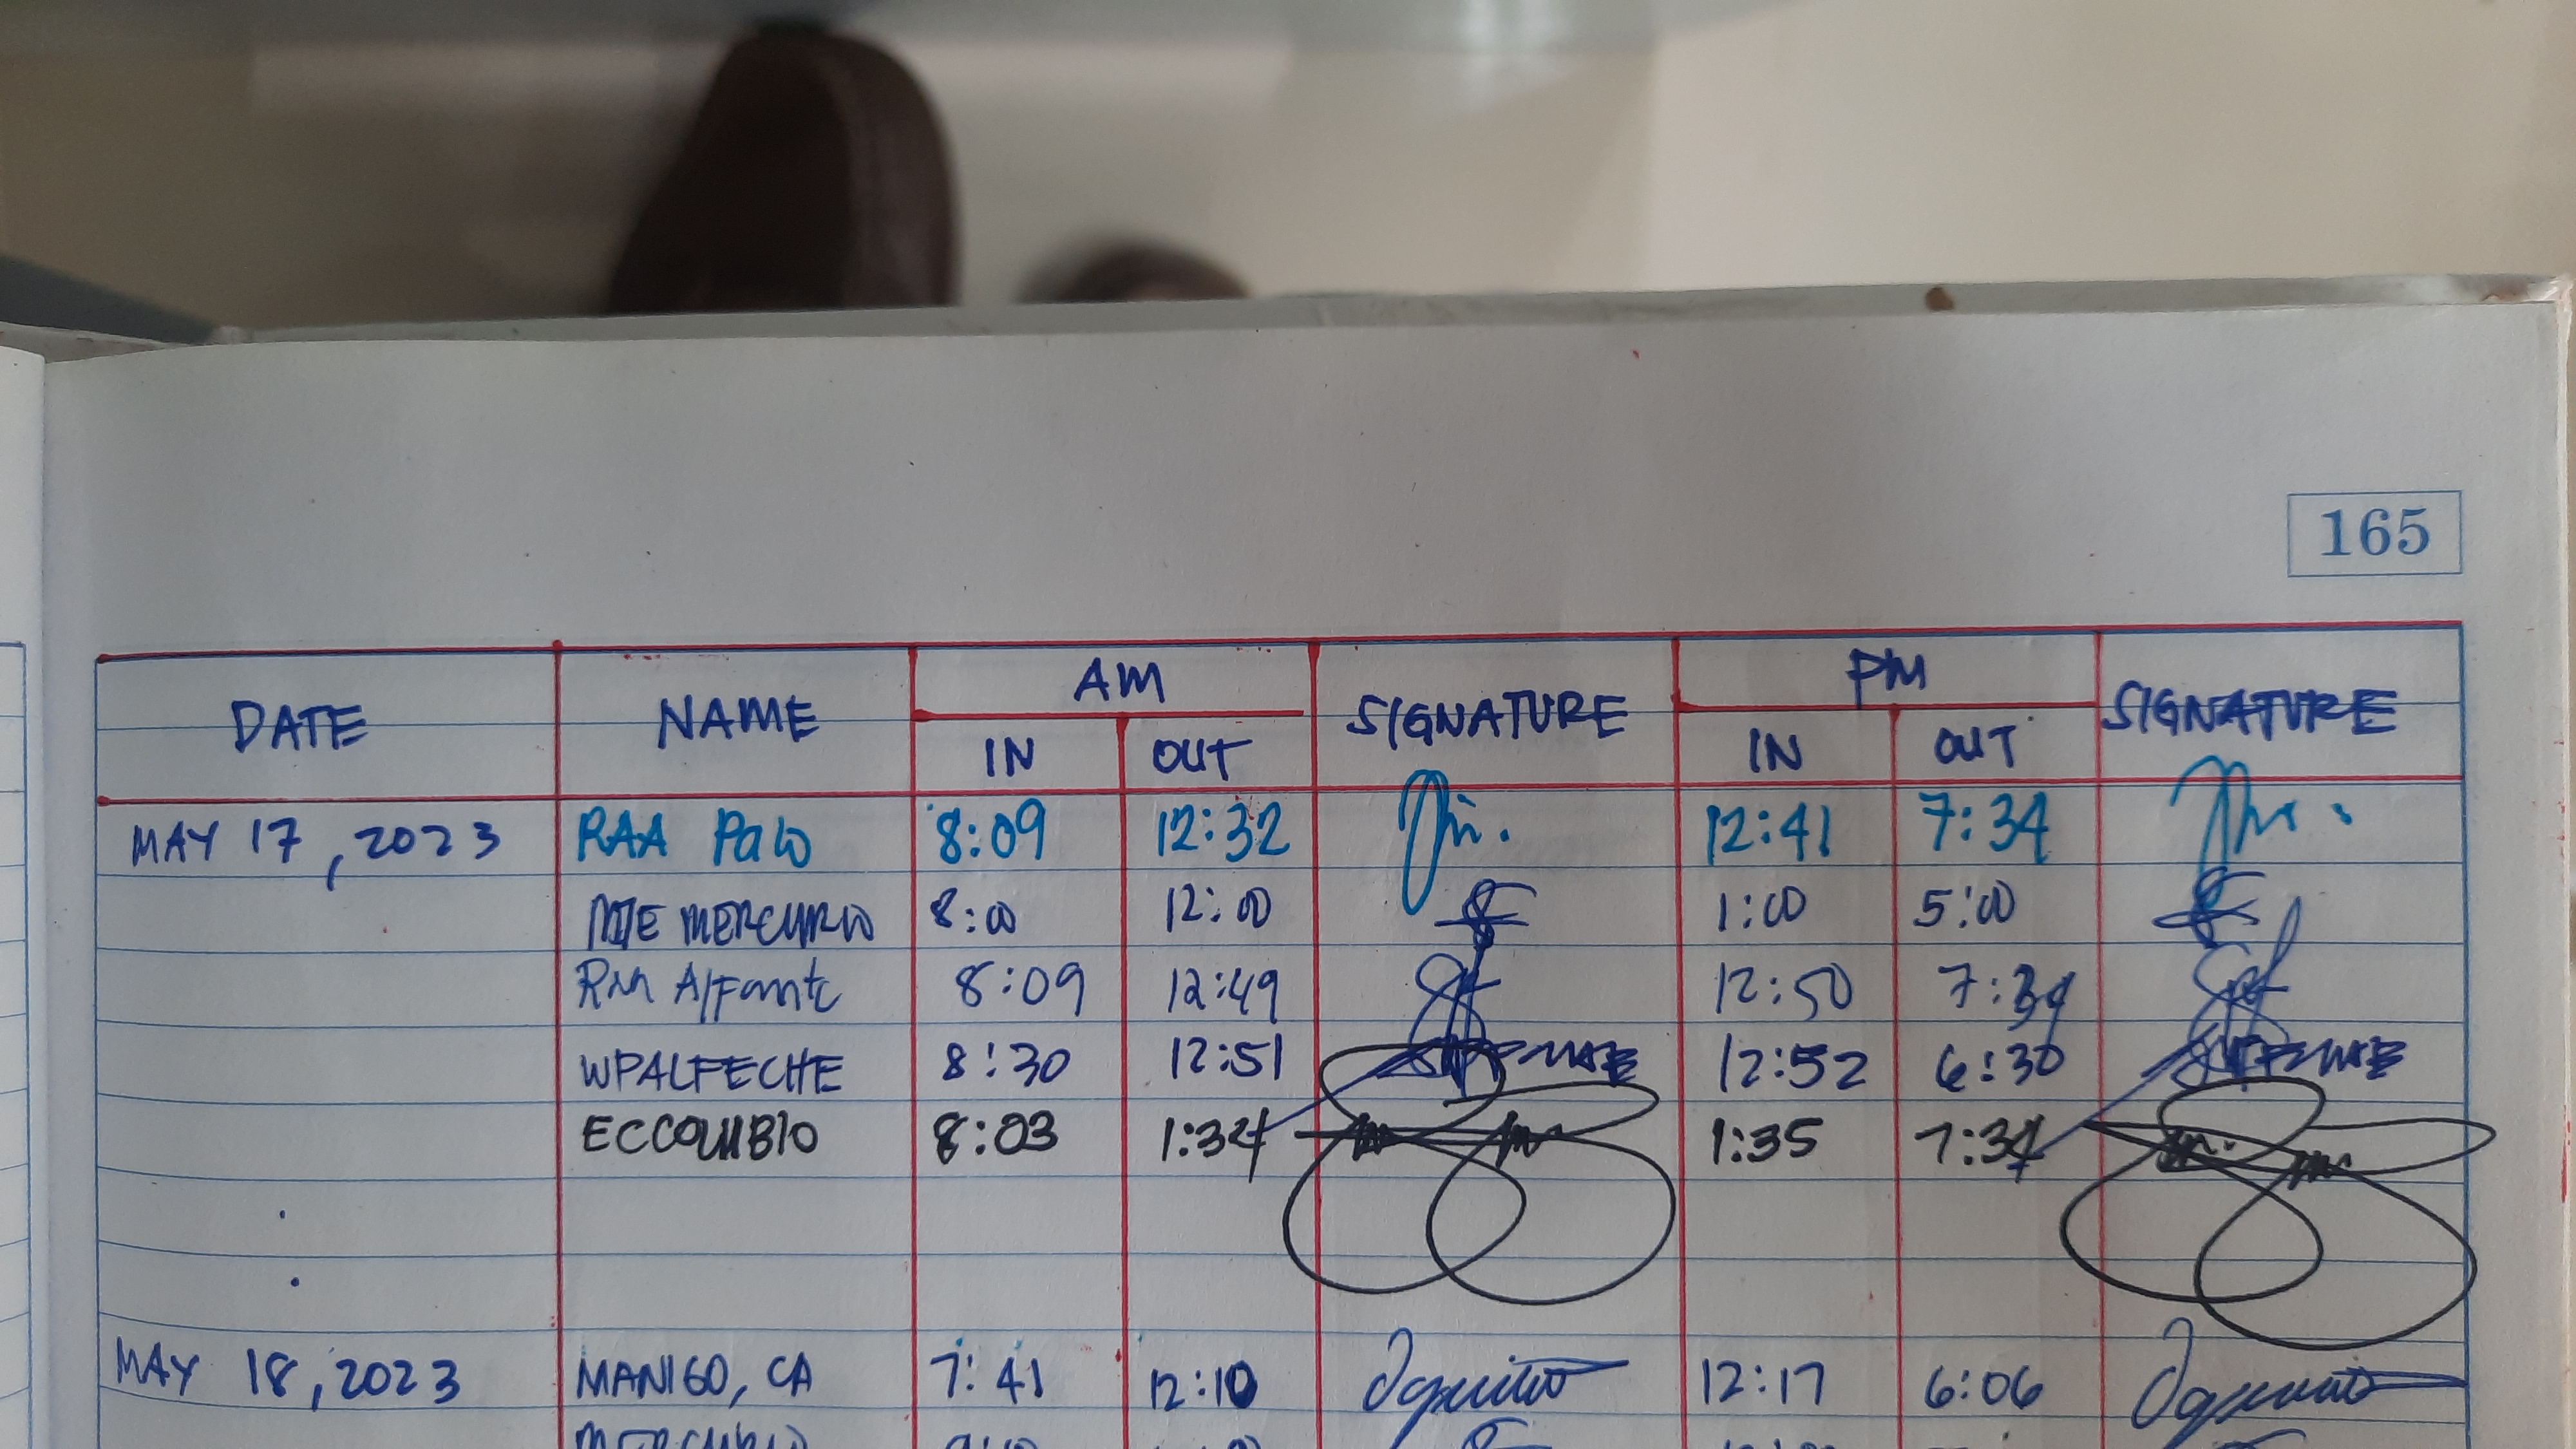 165
DATE NAME AM SIGNATURE PM SIGNATURE
IN OUT IN OUT
MAY 17, 2023 RAA Palo 8:09 12:32 12:41 7:34
MERCURIO 8:00 12:00 1:00 5:00
RM Alfante 8:09 12:49 12:50 7:34
WPALFECHE 8:30 12:51 12:52 6:30
ECCOLUBIO 8:03 1:34 1:35 7:34
MAY 18, 2023 MANIGO, CA 7:41 12:10 12:17 6:06
MERCURIO